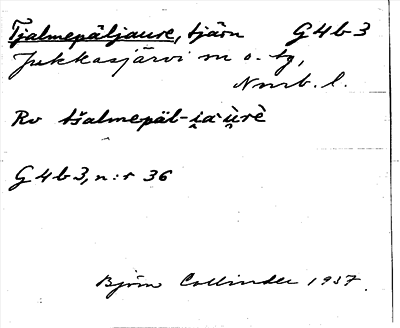 Tjalmepäljaure, tjärn G4b3
Jukkasjärvi sn o. tg,
Nrrb. l.
Rv tšalmepäl-i̭a·ù̯rè
G4b3, n:r 36
Björn Collinder 1937.